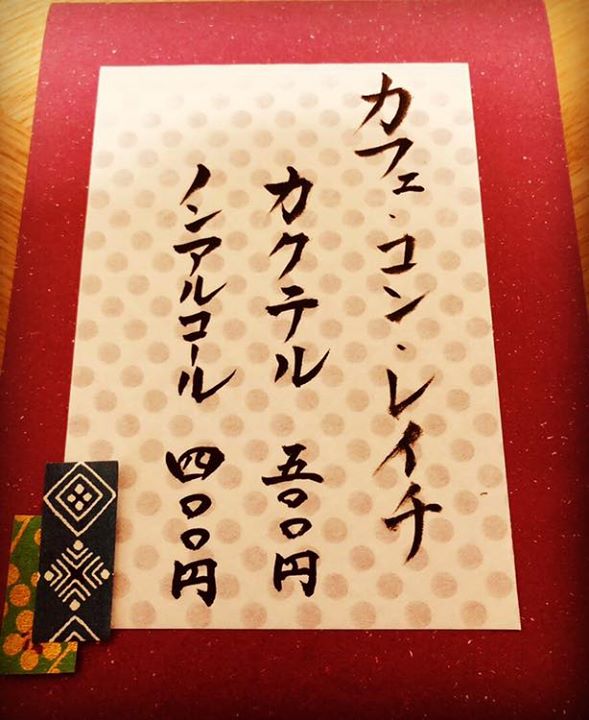 カフェ・コン・レイチ
カクテル 五〇〇円
ノンアルコール 四〇〇円